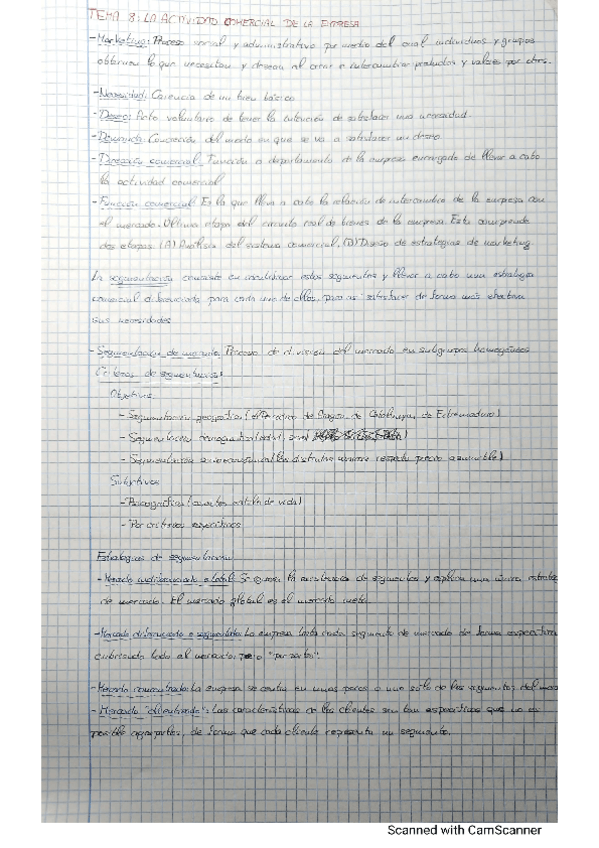 TEMA 8: LA ACTIVIDAD COMERCIAL DE LA EMPRESA
-Marketing: Proceso social y administrativo por medio del cual individuos y grupos
obtienen lo que necesitan y desean al crear e intercambiar productos y valores por otros.
-Necesidad: Carencia de un bien básico
-Deseo: Acto voluntario de tener la intención de satisfacer una necesidad.
-Demanda: Concreción del modo en que se va a satisfacer un deseo
-Dirección comercial: Función o departamento de la empresa encargada de llevar a cabo
la actividad comercial
-Función comercial: Es la que lleva a cabo la relación de intercambio de la empresa con
el mercado. Última etapa del circuito real de bienes de la empresa. Esta comprende
dos etapas: (A) Análisis del sistema comercial, (D) Diseño de estrategias de marketing.
La segmentación consiste en identificar estos segmentos y llevar a cabo una estrategia
comercial diferenciada para cada uno de ellos, para así satisfacer de forma más efectiva
sus necesidades
-Segmentación de mercado: Proceso de división del mercado en subgrupos homogéneos
Criterios de segmentación:
Objetivos
-Segmentación geográfica ( de Aragón, de Catalunya, de Extremadura)
-Segmentación demográfica (edad,
-Segmentación socioeconómica (los distintos respecto precio asumible)
Subjetivos
-Psicográficos ( estilo de vida)
-Por criterios específicos
Estrategias de segmentación
-Mercado indiferenciado o total: Se ignora la existencia de segmentos y aplica una única estrategia
de mercado. El mercado global es el mercado meta.
-Mercado diferenciado o segmentado: La empresa trata cada segmento de mercado de forma específica
cubriendo todo el mercado, "por partes".
-Mercado concentrado: La empresa se centra en unos pocos o uno solo de los segmentos del
-Mercado "clientizado": Las características de los clientes son tan específicas que no es
posible agruparlos, de forma que cada cliente representa un segmento.
Scanned with CamScanner